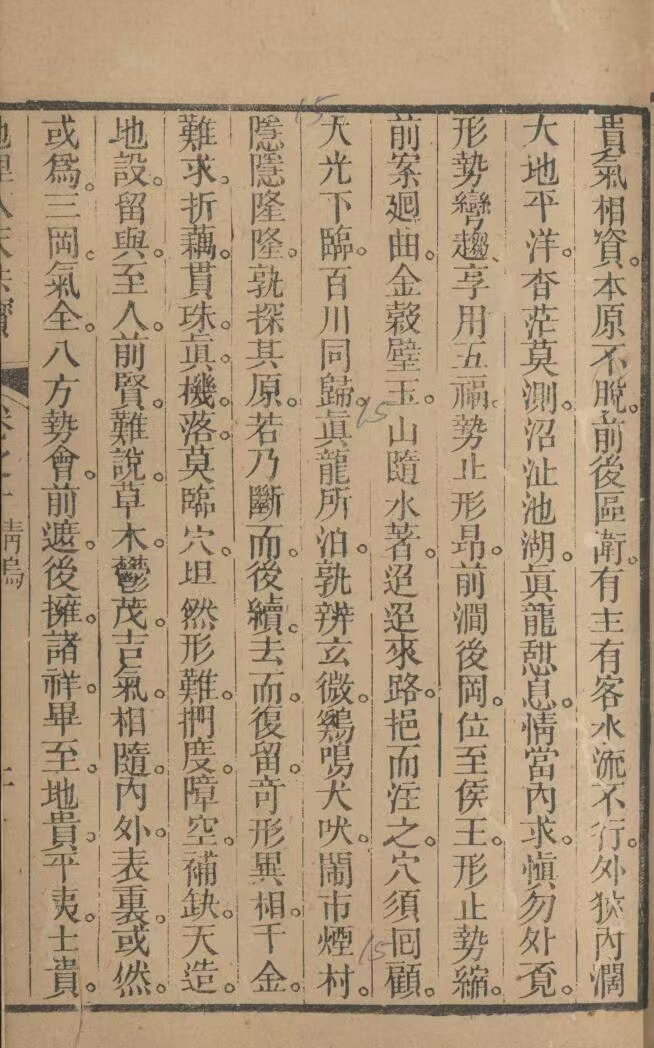 貴氣相資。本原不脫。前後區衛。有主有客。水流不行。外狹內濶
大地平洋。杳茫莫測。沼沚池湖。眞龍憇息。情當內求。愼勿外覔。
形勢彎趨。享用五福。勢止形昻。前澗後岡。位至侯王。形止勢縮。
前案廻曲。金穀璧玉。山隨水著。迢迢來路。挹而注之。穴須回顧。
天光下臨。百川同歸。眞龍所泊。孰辨玄微。鷄鳴犬吠。鬧市煙村。
隱隱隆隆。孰探其原。若乃斷而後續。去而復留。奇形異相。千金
難求。折藕貫珠。眞機落莫。臨穴坦然。形難捫度。障空補缺。天造
地設。留與至人。前賢難說。草木鬱茂。吉氣相隨。內外表裏。或然
或爲。三岡氣全。八方勢會。前遮後擁。諸祥畢至。地貴平夷。士貴。
地理人天共寶 卷之一 靑烏
15
15
15